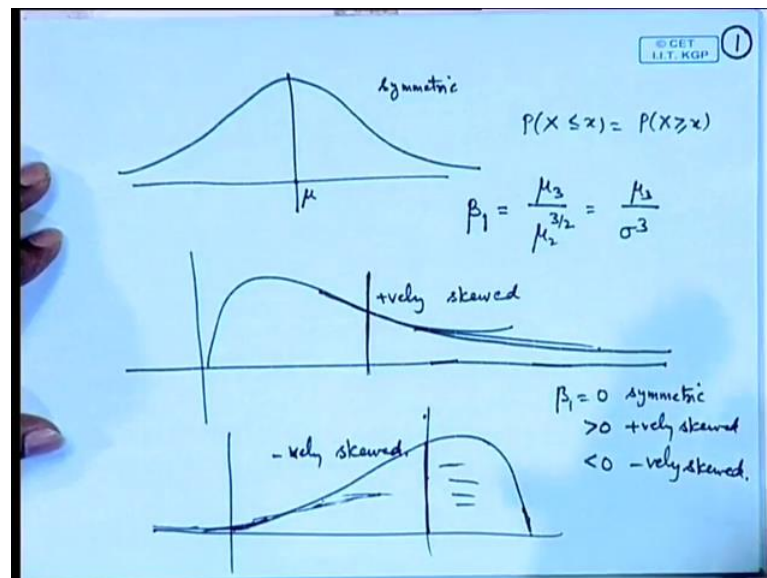 © CET
I.I.T. KGP
1
symmetric
P(X ≤ x) = P(X ≥ x)
μ
β₁ = μ₃ / μ₂^(3/2) = μ₃ / σ³
+vely skewed
β₁ = 0 symmetric
>0 +vely skewed
<0 -vely skewed.
-vely skewed.